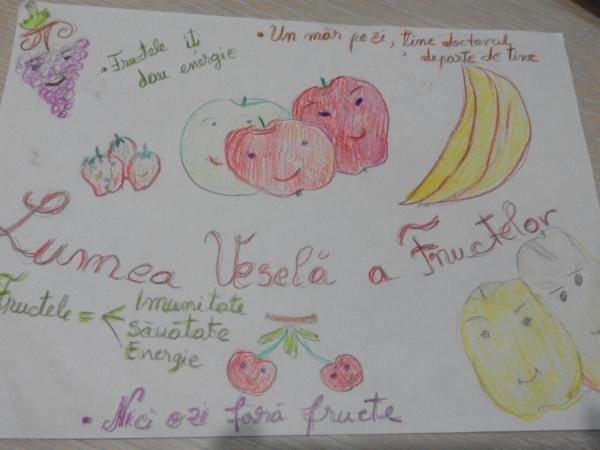 • Fructele iti
dau energie
• Un măr pe zi, ține doctorul
departe de tine
Lumea Veselă a Fructelor
Fructele =
Imunitate
Sănătate
Energie
• Nici o zi fără fructe